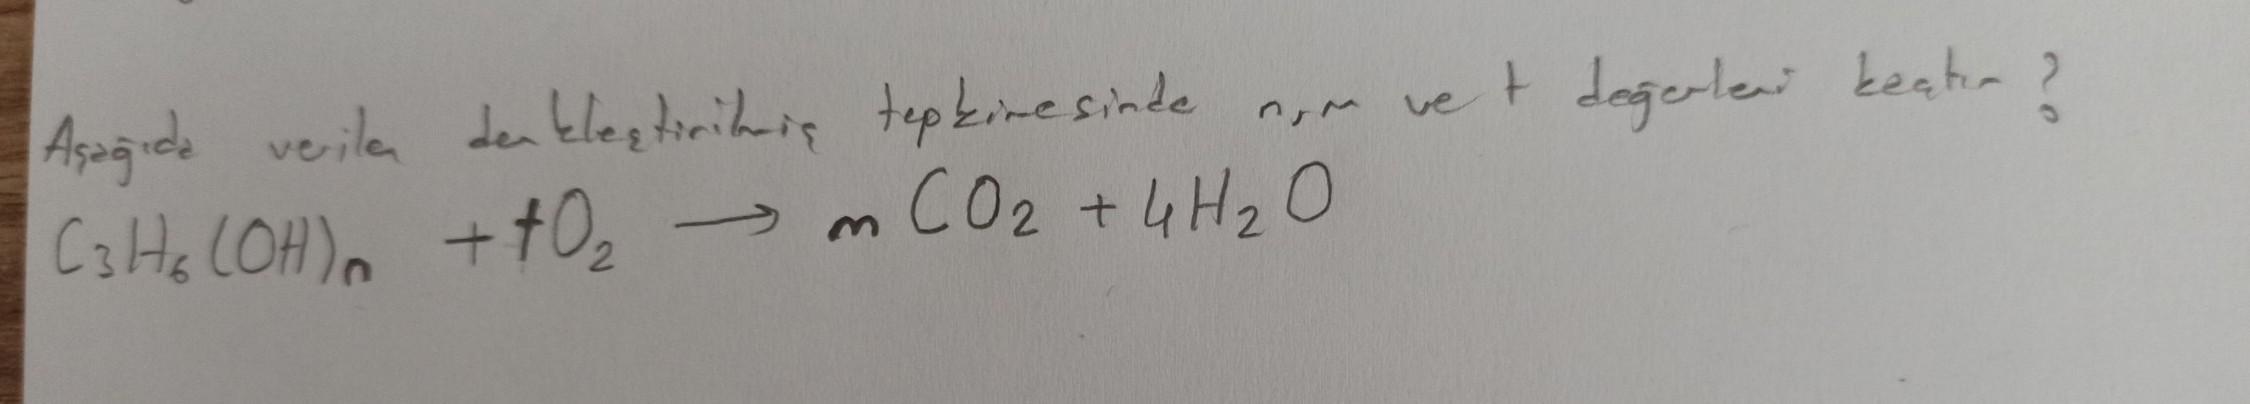 Aşağıda verilen denkleştirilmiş tepkimesinde n, m ve t değerleri kaçtır?
C₃H₆(OH)ₙ + tO₂ → m CO₂ + 4H₂O